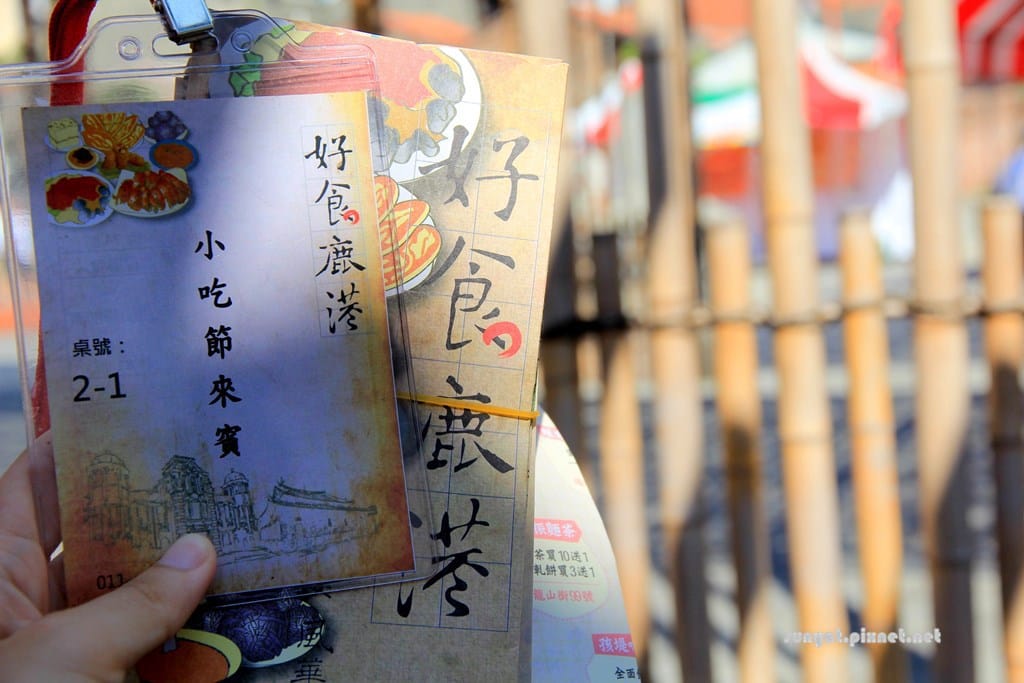 好食鹿港
小吃節來賓
桌號：
2-1
011
好食鹿港
風華
麵茶
茶買10送1
軋餅買3送1
龍山街99號
全面
sunyat.pixnet.net